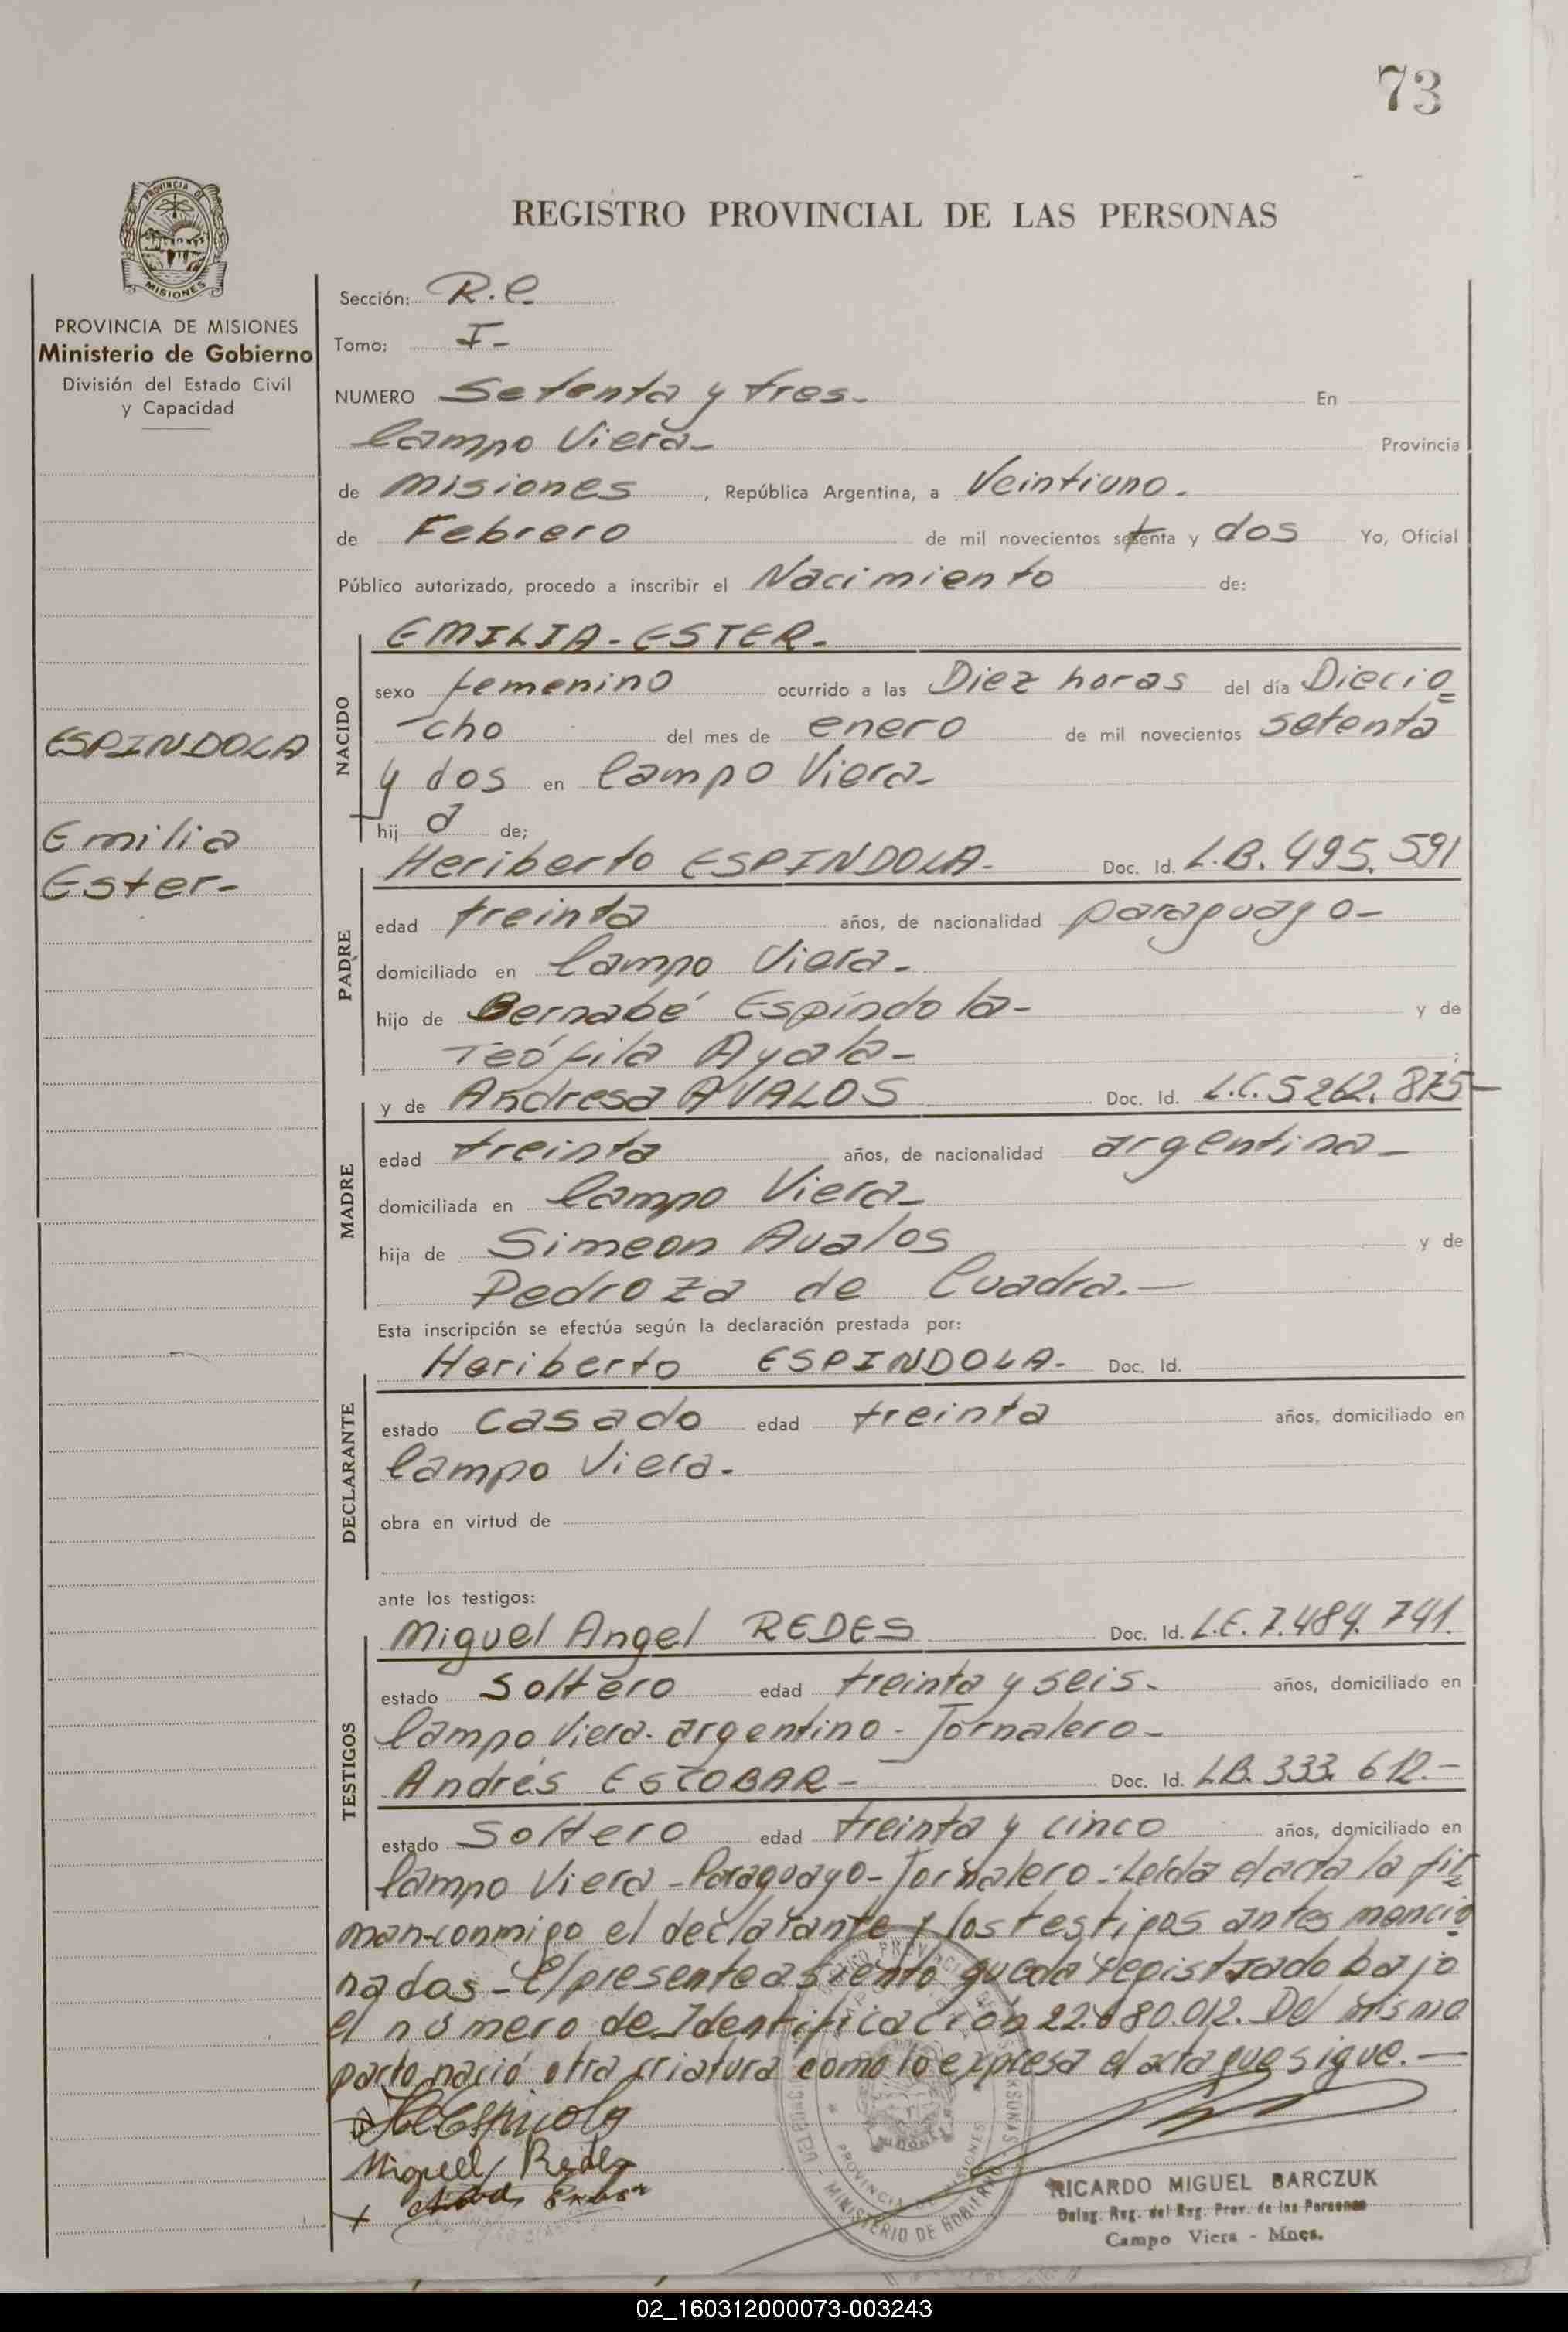 73
PROVINCIA DE
MISIONES
REGISTRO PROVINCIAL DE LAS PERSONAS
PROVINCIA DE MISIONES
Ministerio de Gobierno
División del Estado Civil
y Capacidad
ESPINDOLA
Emilia
Ester-
Sección: R.C.
Tomo: I-
NUMERO Setenta y tres.- En
Campo Viera- Provincia
de Misiones, República Argentina, a Veintiuno.
de Febrero de mil novecientos setenta y dos Yo, Oficial
Público autorizado, procedo a inscribir el Nacimiento de:
NACIDO
EMILIA-ESTER.-
sexo femenino ocurrido a las Diez horas del día Diecio=
cho del mes de enero de mil novecientos setenta
y dos en Campo Viera-
hij a de;
PADRE
Heriberto ESPINDOLA- Doc. Id. L.B. 495.591
edad treinta años, de nacionalidad paraguayo-
domiciliado en Campo Viera-
hijo de Bernabé Espíndola- y de
Teófila Ayala- ;
MADRE
y de Andresa AVALOS Doc. Id. L.C. 5262.875-
edad treinta años, de nacionalidad argentina-
domiciliada en Campo Viera-
hija de Simeon Avalos y de
Pedroza de Cuadra.-
Esta inscripción se efectúa según la declaración prestada por:
DECLARANTE
Heriberto ESPINDOLA- Doc. Id.
estado casado edad treinta años, domiciliado en
Campo Viera-
obra en virtud de
ante los testigos:
TESTIGOS
Miguel Angel REDES Doc. Id. L.E. 7.484.741.
estado soltero edad treinta y seis- años, domiciliado en
Campo Viera-argentino-Jornalero-
Andrés ESCOBAR- Doc. Id. L.B. 333.612.-
estado soltero edad treinta y cinco años, domiciliado en
Campo Viera-Paraguayo-Jornalero-Leída el acta la fir=
man conmigo el declarante y los testigos antes mencio=
nados-El presente asiento queda registrado bajo
el número de Identificación 22.680.012. Del mismo
parto nació otra criatura como lo expresa el acta que sigue.-
Miguel Redes
PROVINCIA DE MISIONES
MINISTERIO DE GOBIERNO
RICARDO MIGUEL BARCZUK
Deleg. Reg. del Reg. Prov. de las Personas
Campo Viera - Mnes.
02_160312000073-003243